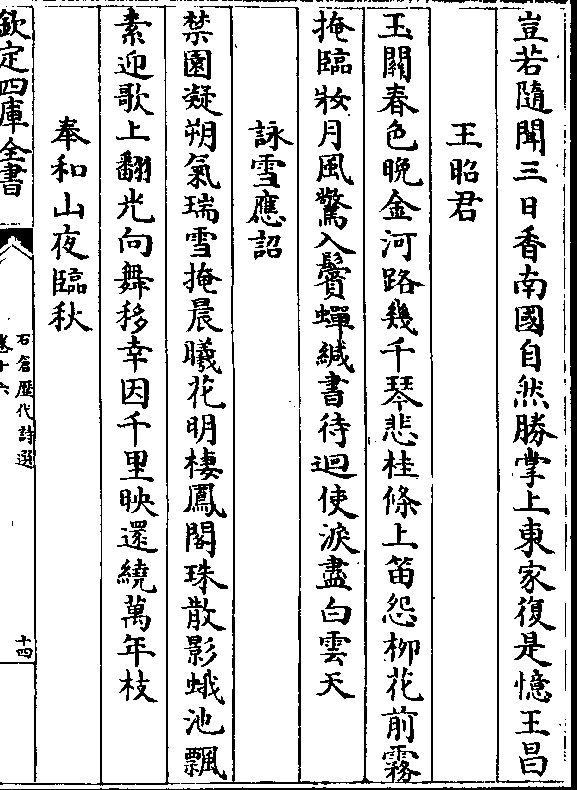 豈若隨聞三日香南國自然勝掌上東家復是憶王昌
王昭君
玉關春色晚金河路幾千琴悲桂條上笛怨栁花前霧
掩臨妝月風驚入鬢蟬緘書待迴使淚盡白雲天
詠雪應詔
禁園凝朔氣瑞雪掩晨曦花明棲鳳閣珠散影蛾池飄
素迎歌上翻光向舞移幸因千里映還繞萬年枝
奉和山夜臨秋
欽定四庫全書
石倉歷代詩選
卷十六
十四